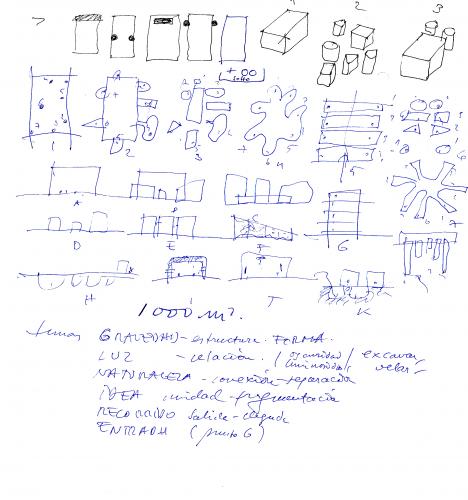 1 2 3
+ 00
6
1 2 3 4 5 6 7
A B C
D E F G
H I K
1000 m².
temas GRAVEDAD - estructura. FORMA.
LUZ - relación. / oscuridad / excavar
luminosidad velar -
NATURALEZA - conexión - separación
IDEA unidad - fragmentación
RECORRIDO salida - llegada
ENTRADA (punto 6)